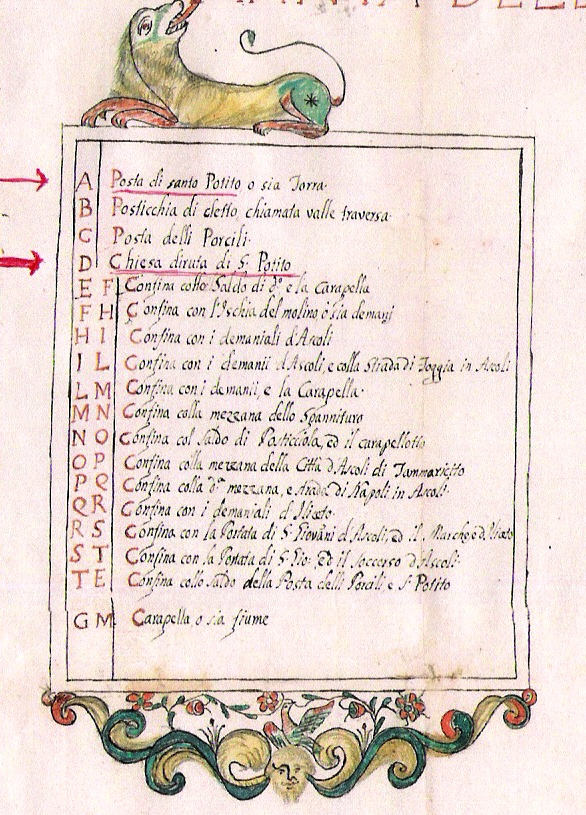 A Posta di santo Potito o sia Torra.
B Posticchia di cletto, chiamata valle traversa.
C Posta delli Porcili.
D Chiesa diruta di S. Potito
E F Confina collo Saldo di d.º e la Carapella
F H Confina con l'Ischia del molino ò sia demanj
H I Confina con i demaniali d'Ascoli
I L Confina con i demanii d'Ascoli, e colla Strada di Foggia in Ascoli
L M Confina con i demanii, e la Carapella.
M N Confina colla mezzana dello Spannituro
N O Confina col saldo di Posticciola, ed il carapellotto
O P Confina colla mezzana della Città d'Ascoli di Tammaricito
P Q Confina colla d.ª mezzana, e strada di Napoli in Ascoli.
Q R Confina con i demaniali d'Iliceto.
R S Confina con la Portata di S. Giovani d'Ascoli, ed il
S T Confina con la Portata di S. Gio: ed il soccorso d'Ascoli.
T E Confina collo saldo della Posta delli Porcili, e S. Potito
G M Carapella, o sia fiume